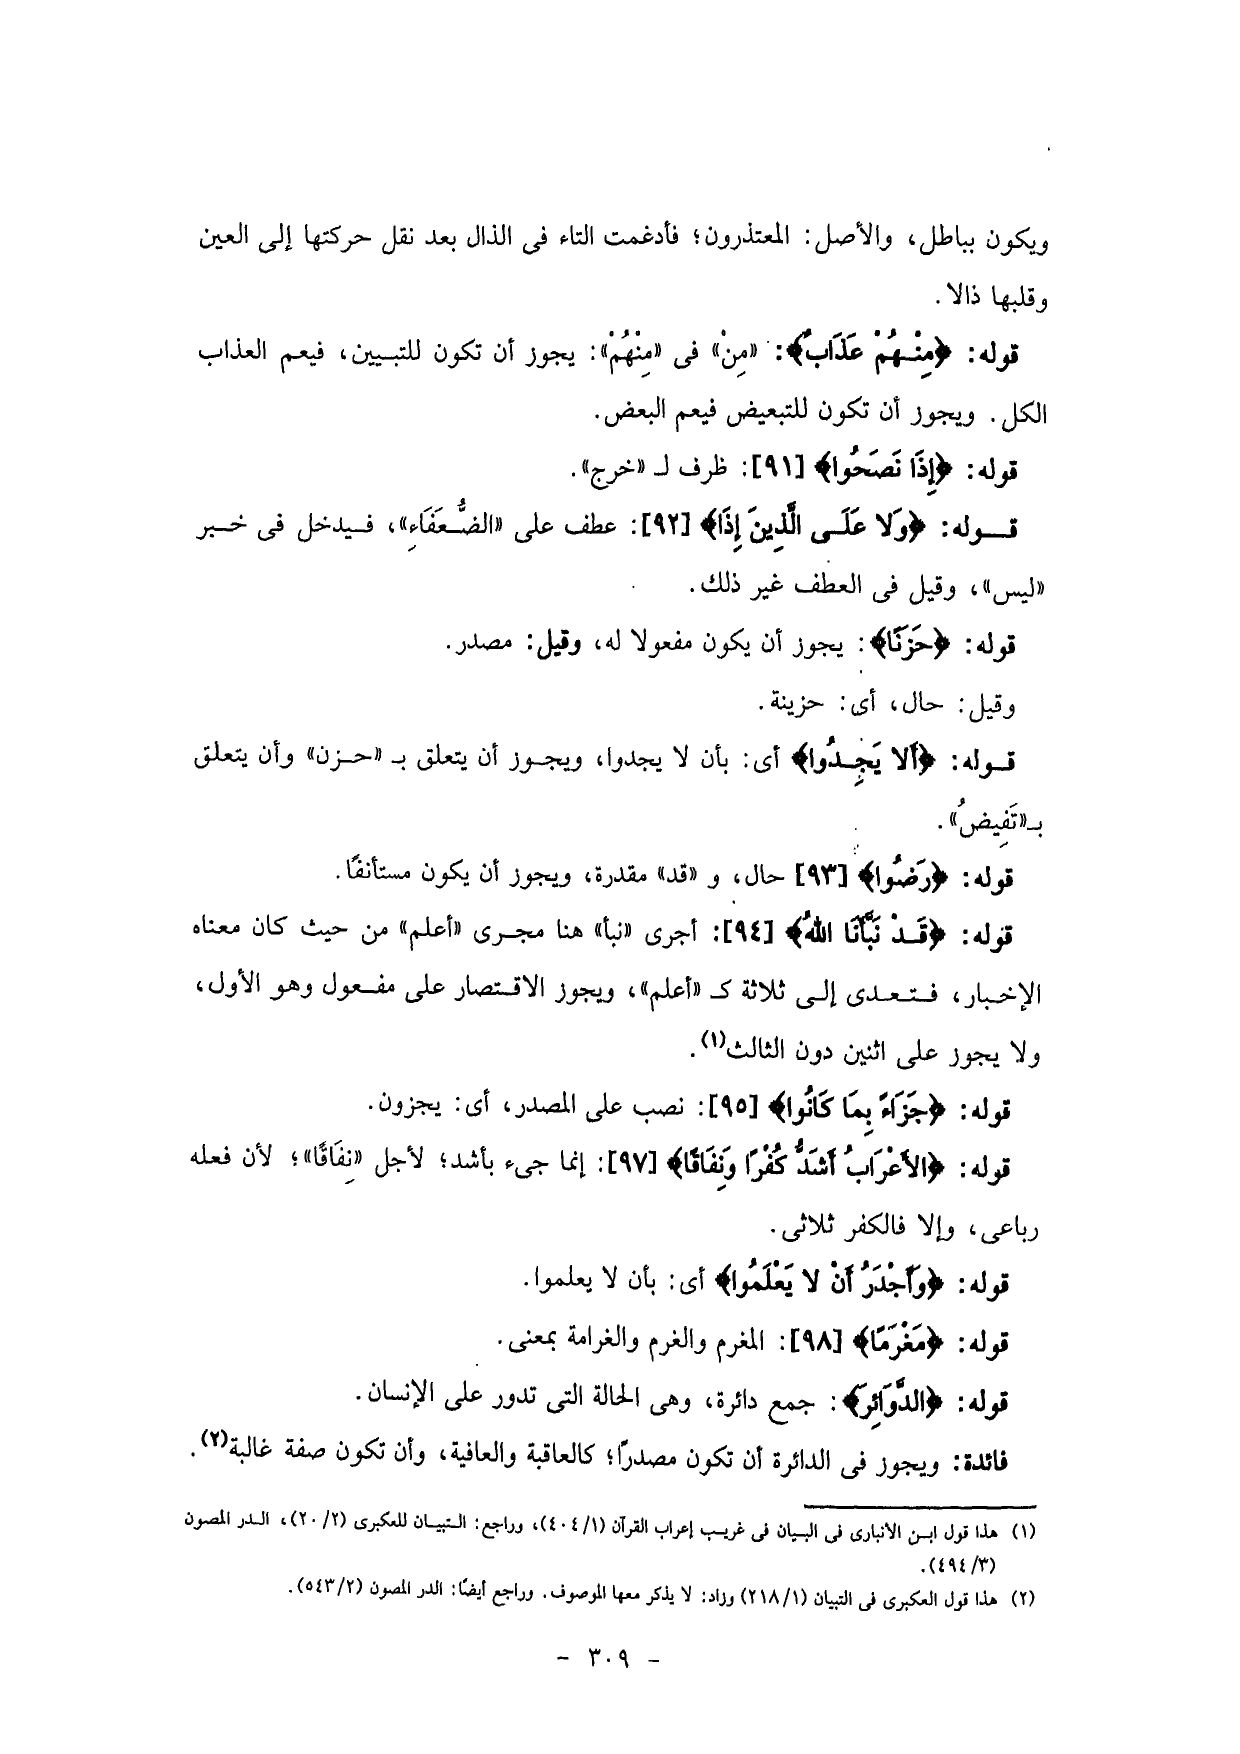 ويكون بباطل، والأصل: المعتذرون؛ فأدغمت التاء فى الذال بعد نقل حركتها إلى العين
وقلبها ذالا.
قوله: ﴿مِنْهُمْ عَذَابٌ﴾: «مِنْ» فى «مِنْهُمْ»: يجوز أن تكون للتبيين، فيعم العذاب
الكل. ويجوز أن تكون للتبعيض فيعم البعض.
قوله: ﴿إِذَا نَصَحُوا﴾ [٩١]: ظرف لـ «خرج».
قوله: ﴿وَلا عَلَى الَّذِينَ إِذَا﴾ [٩٢]: عطف على «الضُّعَفَاءِ»، فيدخل فى خبر
«ليس»، وقيل فى العطف غير ذلك.
قوله: ﴿حَزَنًا﴾: يجوز أن يكون مفعولا له، وقيل: مصدر.
وقيل: حال، أى: حزينة.
قوله: ﴿أَلا يَجِدُوا﴾ أى: بأن لا يجدوا، ويجوز أن يتعلق بـ «حزن» وأن يتعلق
بـ«تَفِيضُ».
قوله: ﴿رَضُوا﴾ [٩٣] حال، و «قد» مقدرة، ويجوز أن يكون مستأنفًا.
قوله: ﴿قَدْ نَبَّأَنَا اللهُ﴾ [٩٤]: أجرى «نبأ» هنا مجرى «أعلم» من حيث كان معناه
الإخبار، فتعدى إلى ثلاثة كـ «أعلم»، ويجوز الاقتصار على مفعول وهو الأول،
ولا يجوز على اثنين دون الثالث(١).
قوله: ﴿جَزَاءً بِمَا كَانُوا﴾ [٩٥]: نصب على المصدر، أى: يجزون.
قوله: ﴿الأَعْرَابُ أَشَدُّ كُفْرًا وَنِفَاقًا﴾ [٩٧]: إنما جىء بأشد؛ لأجل «نِفَاقًا»؛ لأن فعله
رباعى، وإلا فالكفر ثلاثى.
قوله: ﴿وَأَجْدَرُ أَنْ لا يَعْلَمُوا﴾ أى: بأن لا يعلموا.
قوله: ﴿مَغْرَمًا﴾ [٩٨]: المغرم والغرم والغرامة بمعنى.
قوله: ﴿الدَّوَائِرَ﴾: جمع دائرة، وهى الحالة التى تدور على الإنسان.
فائدة: ويجوز فى الدائرة أن تكون مصدرًا؛ كالعاقبة والعافية، وأن تكون صفة غالبة(٢).
(١) هذا قول ابن الأنبارى فى البيان فى غريب إعراب القرآن (٤٠٤/١)، وراجع: التبيان للعكبرى (٢٠/٢)، الدر المصون
(٤٩٤/٣).
(٢) هذا قول العكبرى فى التبيان (٢١٨/١) وزاد: لا يذكر معها الموصوف. وراجع أيضًا: الدر المصون (٥٤٣/٢).
- ٣٠٩ -